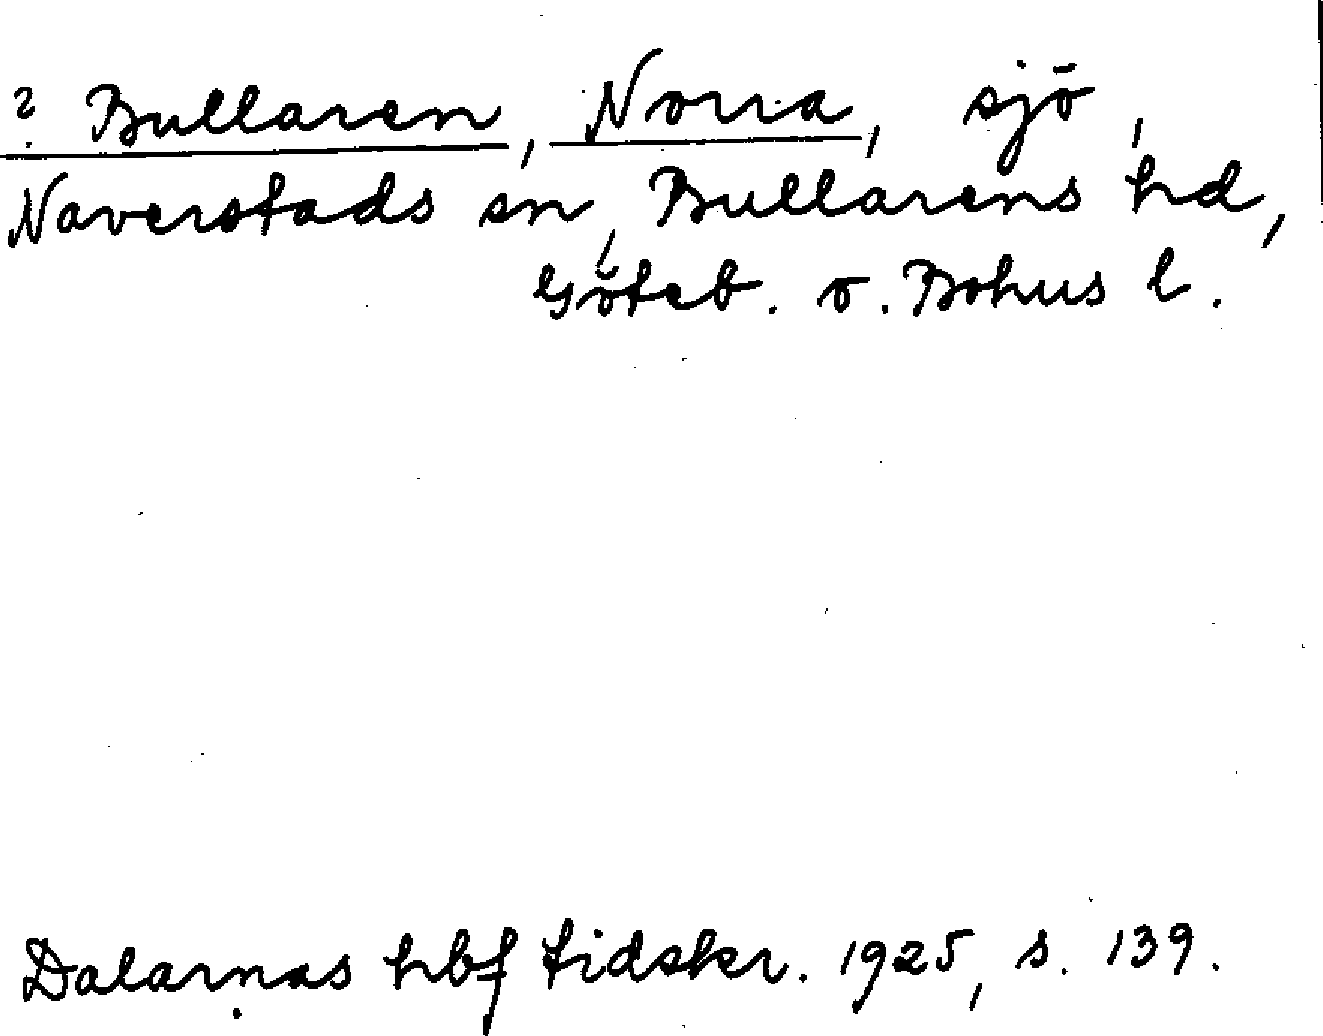 ? Bullaren, Norra, sjö,
Naverstads sn, Bullarens hd,
Göteb. o. Bohus l.
Dalarnas hbf tidskr. 1925, s. 139.